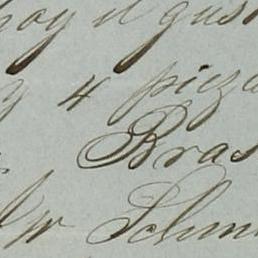 hoy el gus
y 4 pieza
Bras
Schm